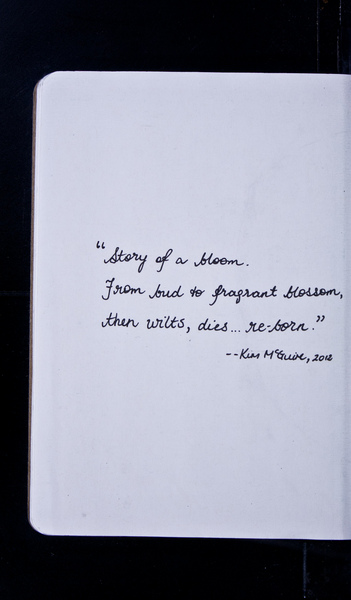 "Story of a bloom.
From bud to fragrant blossom,
then wilts, dies... re-born."
--Kim McGuire, 2012